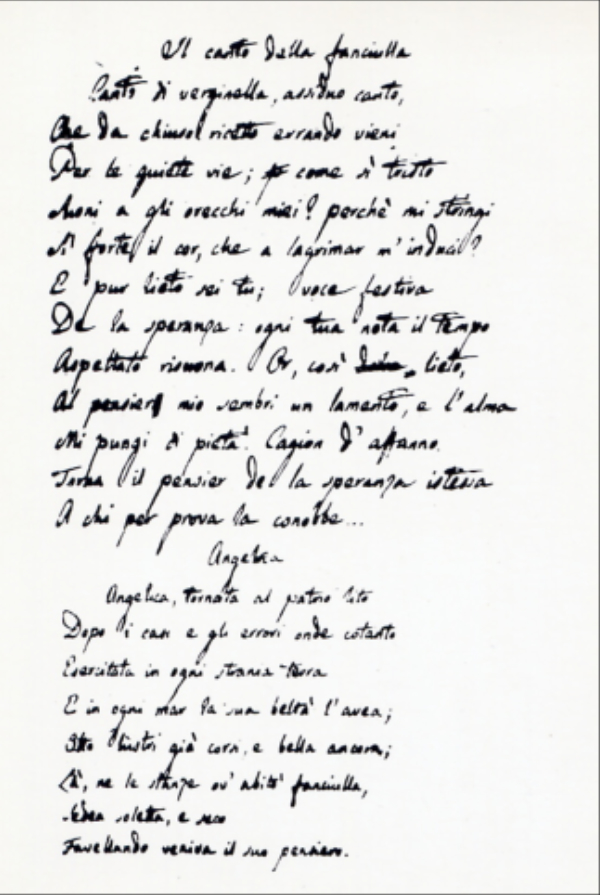 Il canto della fanciulla
Canto di verginella, assiduo canto,
Che da chiuso ricetto errando vieni
Per le quiete vie; come sì tristo
Suoni a gli orecchi miei? perchè mi stringi
Sì forte il cor, che a lagrimar m'induci?
E pur lieto sei tu; voce festiva
De la speranza: ogni tua nota il tempo
Aspettato risuona. Or, così lieto,
Al pensier mio sembri un lamento, e l'alma
Mi pungi di pietà. Cagion d'affanno
Torna il pensier de la speranza istessa
A chi per prova la conobbe...
Angelica
Angelica, tornata al patrio lito
Dopo i casi e gli errori onde cotanto
Esercitata in ogni strania terra
E in ogni mar la sua beltà l'avea;
Otto lustri già corsi, e bella ancora;
Là, ne le stanze ov'abitò fanciulla,
Sedea soletta, e seco
Favellando veniva il suo pensiero.